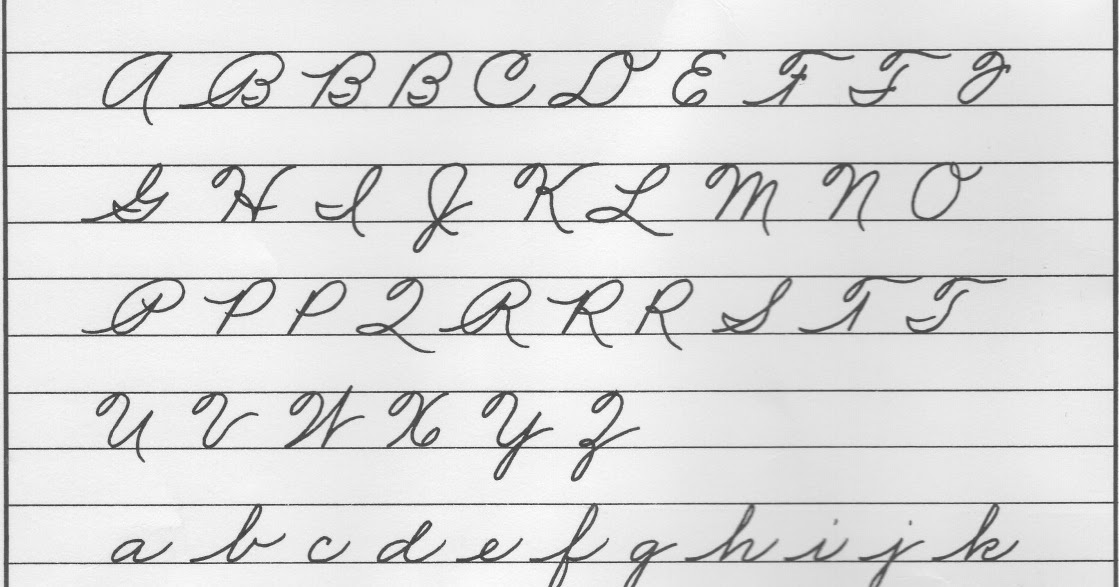 A B B B C D E F F
G H I J K L M N O
P P P Q R R R S T T
U V W X Y Z
a b c d e f g h i j k